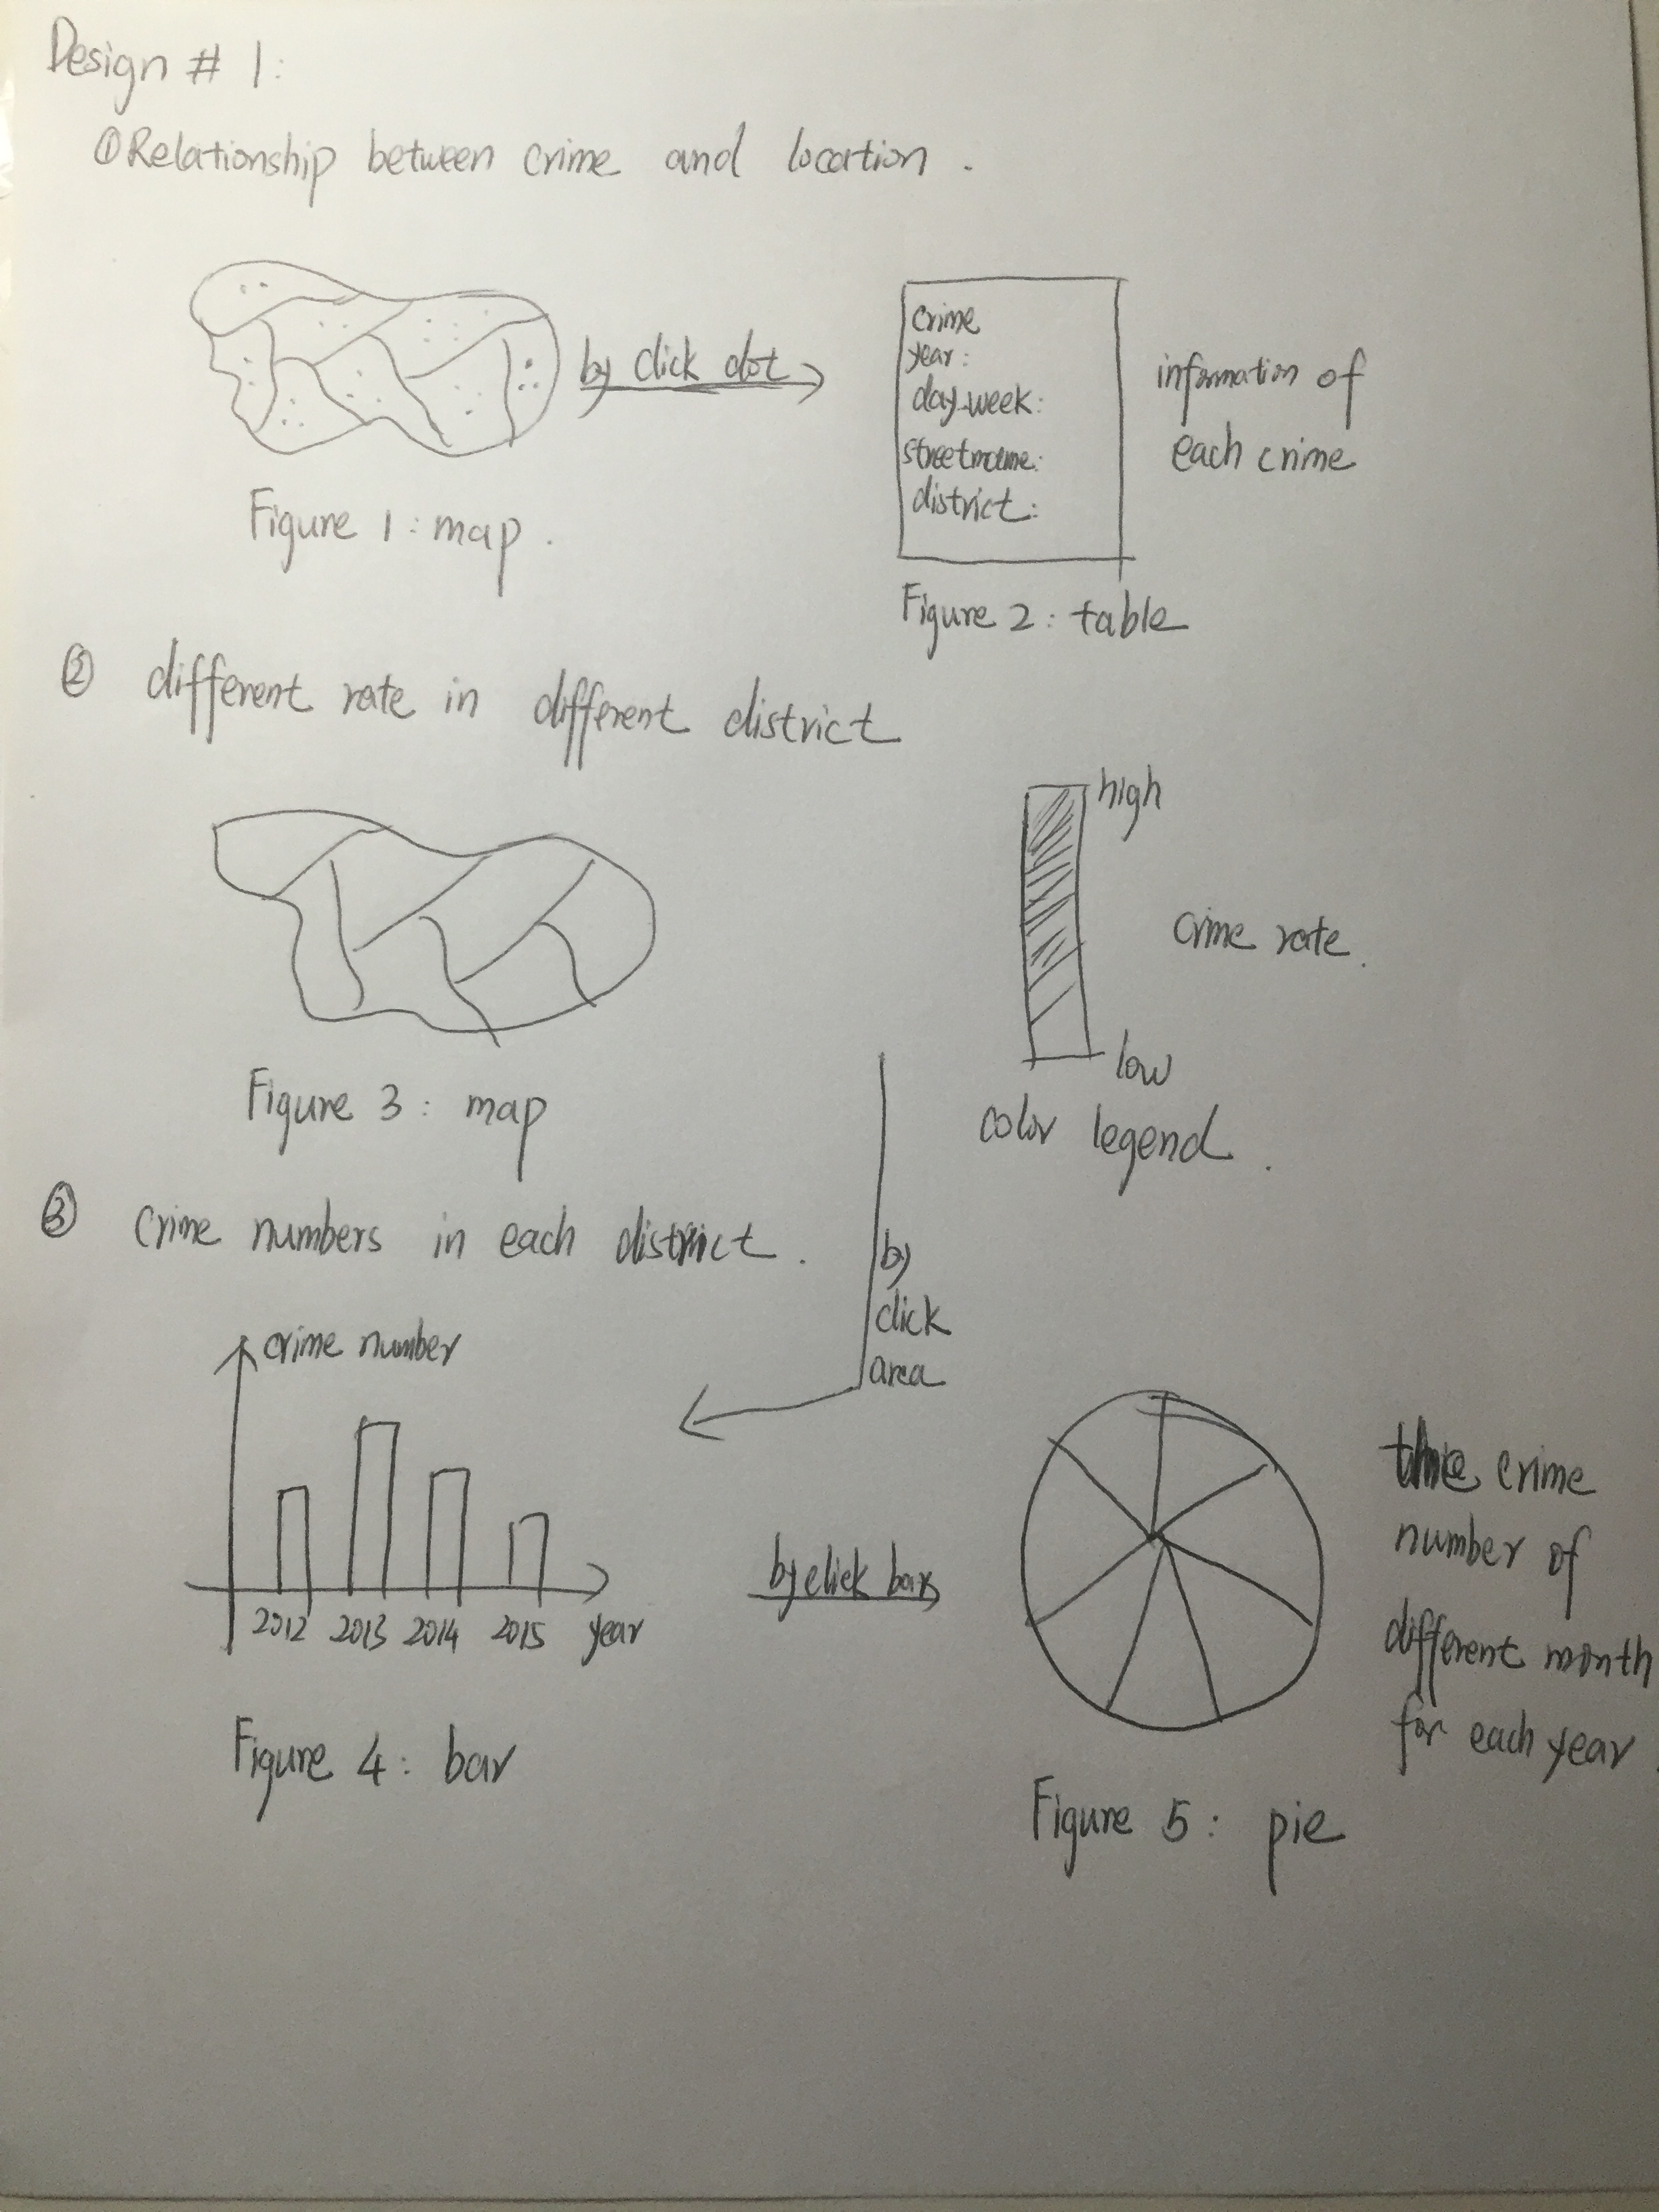 Design # 1:
① Relationship between crime and location.
by click dot
crime
year:
day-week:
streetname:
district:
information of
each crime
Figure 1: map.
Figure 2: table
② different rate in different district
high
crime rate.
low
Figure 3: map
color legend.
③ crime numbers in each district.
by
click
area
crime number
2012 2013 2014 2015 year
by click bar
the crime
number of
different month
for each year.
Figure 4: bar
Figure 5: pie